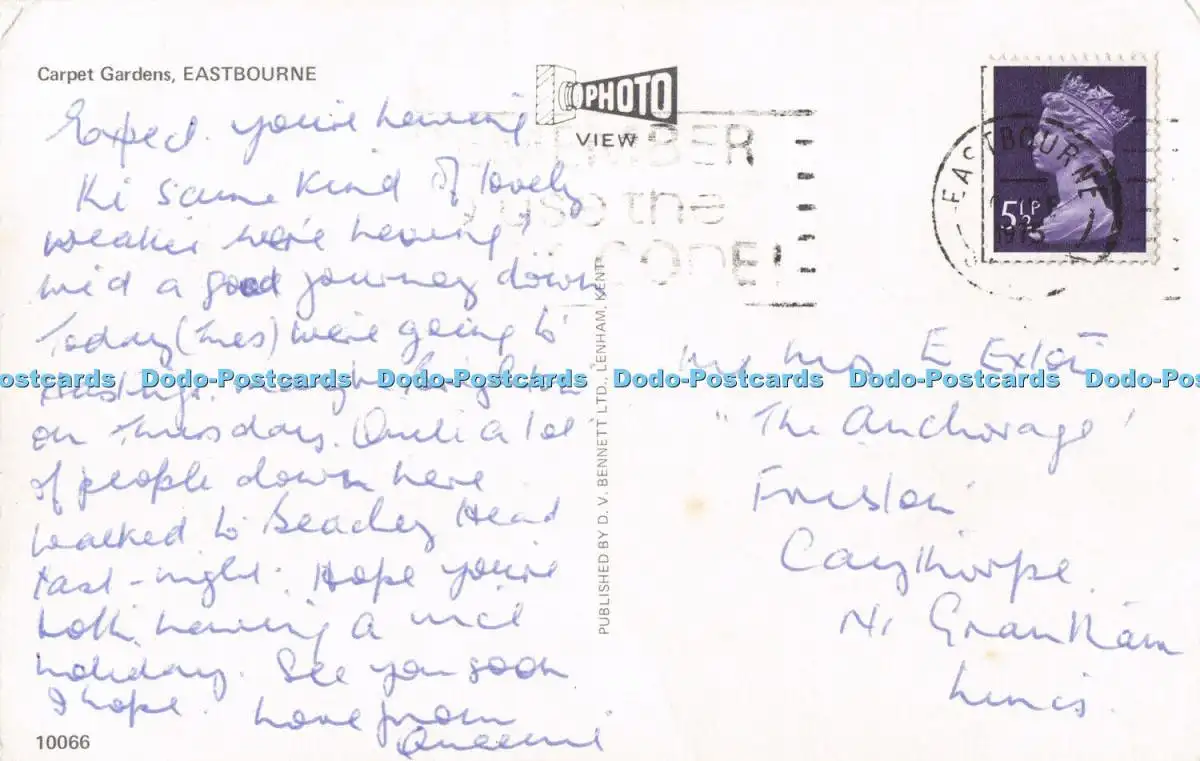 Carpet Gardens, EASTBOURNE
Expect you're having
the same kind of lovely
weather we're having,
had a good journey down
Today (Tues) we're going to
on Thursday. Quite a lot
of people down here
walked to Beachy Head
last-night. Hope you're
both having a nice
holiday. See you soon
I hope. Love from
10066
PHOTO
VIEW
REMEMBER
use the
CODE!
PUBLISHED BY D. V. BENNETT LTD., LENHAM, KENT
EASTBOURNE
5½P
Mr Mrs E
"The Anchorage'
Caythorpe
Nr Grantham
Lincs.
Dodo-Postcards Dodo-Postcards Dodo-Postcards Dodo-Postcards Dodo-Postcards